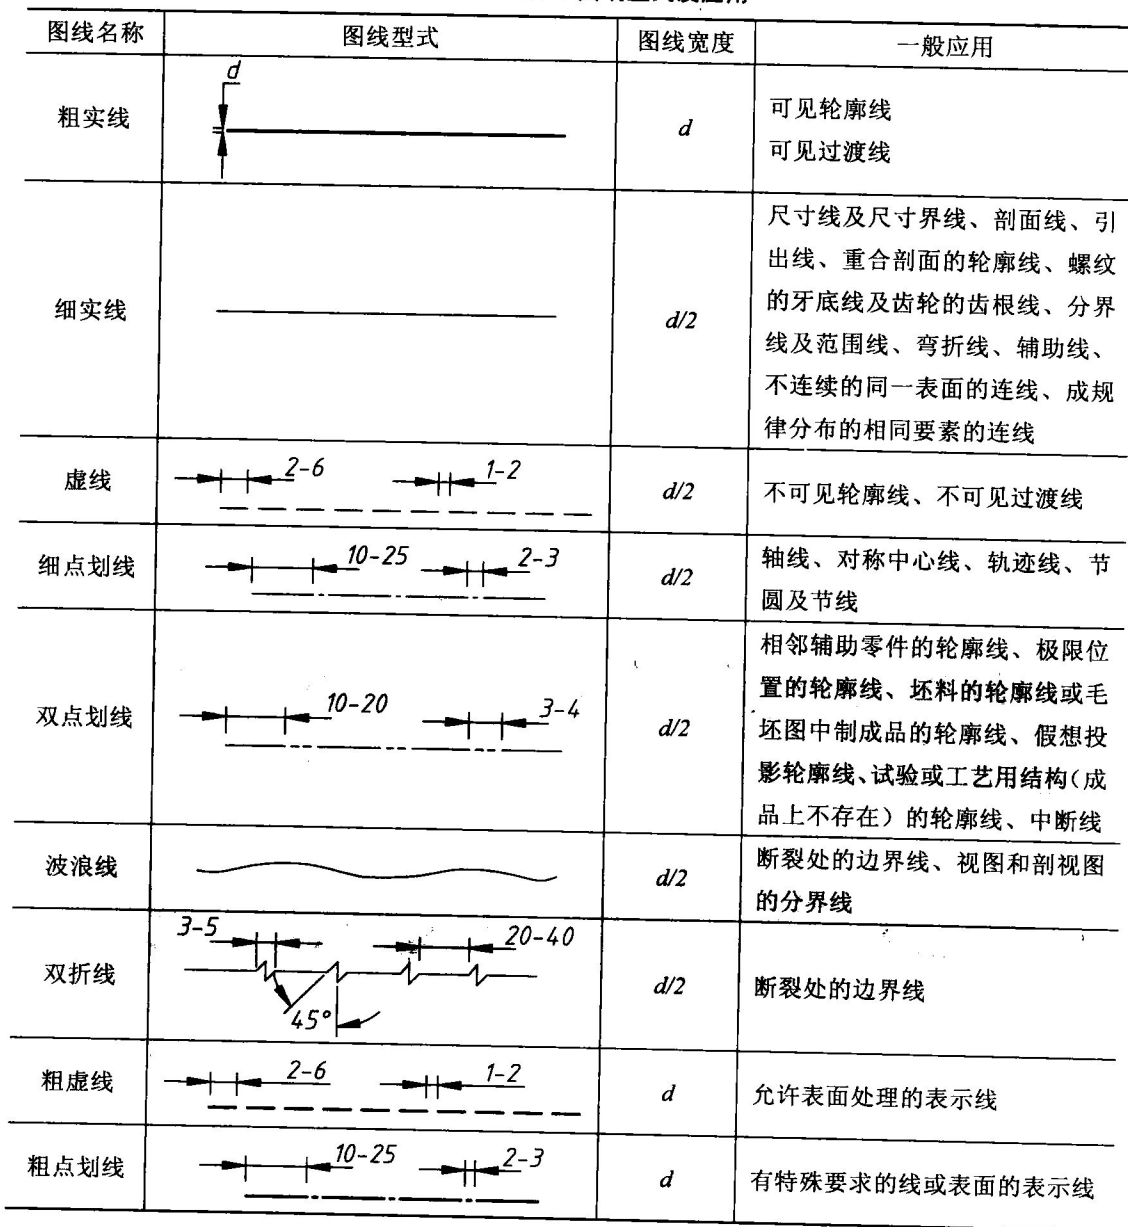 图线名称 图线型式 图线宽度 一般应用
粗实线 d d 可见轮廓线
可见过渡线
细实线 d/2 尺寸线及尺寸界线、剖面线、引
出线、重合剖面的轮廓线、螺纹
的牙底线及齿轮的齿根线、分界
线及范围线、弯折线、辅助线、
不连续的同一表面的连线、成规
律分布的相同要素的连线
虚线 2-6 1-2 d/2 不可见轮廓线、不可见过渡线
细点划线 10-25 2-3 d/2 轴线、对称中心线、轨迹线、节
圆及节线
双点划线 10-20 3-4 d/2 相邻辅助零件的轮廓线、极限位
置的轮廓线、坯料的轮廓线或毛
坯图中制成品的轮廓线、假想投
影轮廓线、试验或工艺用结构(成
品上不存在）的轮廓线、中断线
波浪线 d/2 断裂处的边界线、视图和剖视图
的分界线
双折线 3-5 20-40 45° d/2 断裂处的边界线
粗虚线 2-6 1-2 d 允许表面处理的表示线
粗点划线 10-25 2-3 d 有特殊要求的线或表面的表示线